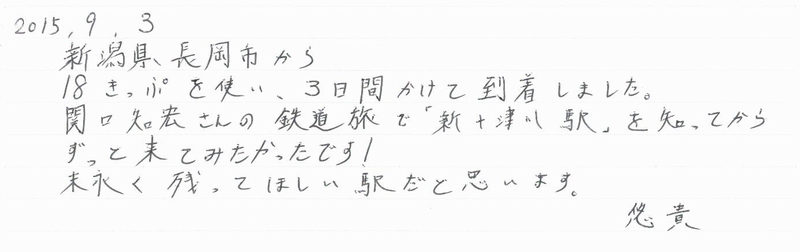 2015, 9, 3
新潟県長岡市から
18きっぷを使い、3日間かけて到着しました。
関口知宏さんの鉄道旅で「新十津川駅」を知ってから
ずっと来てみたかったです!
末永く残ってほしい駅だと思います。
悠貴